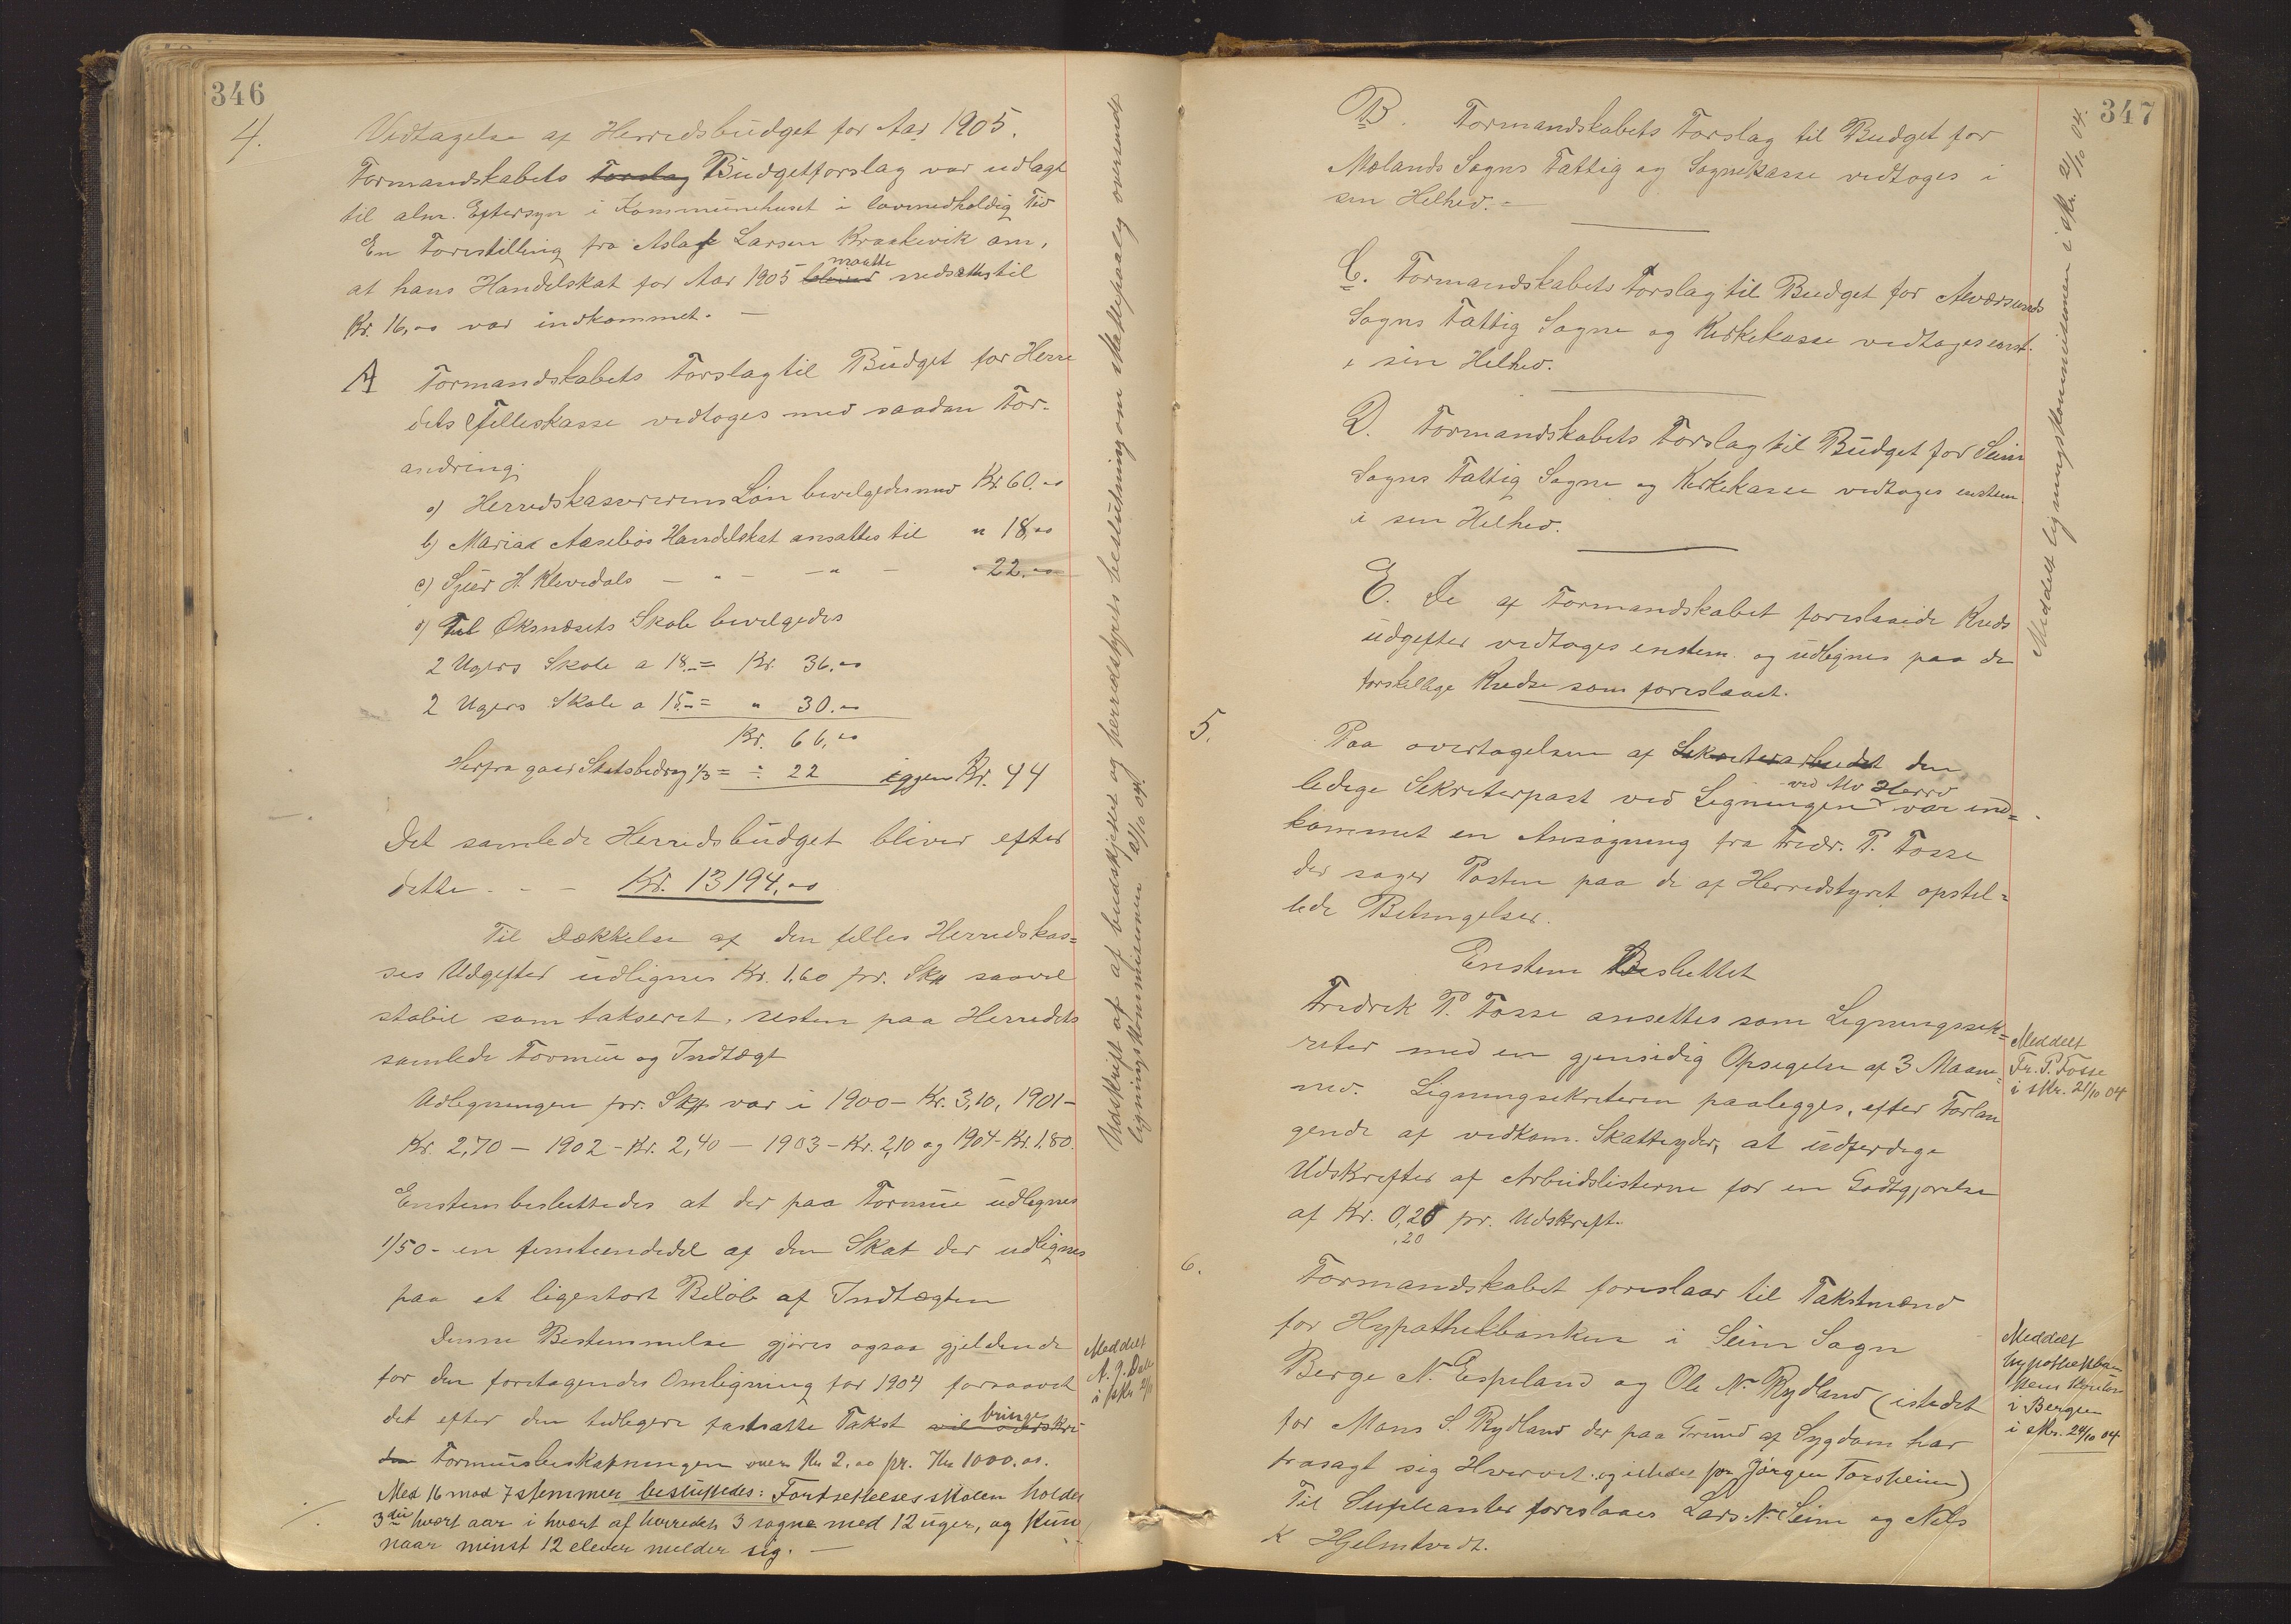 346
4. Vedtagelse af Herredsbudget for Aar 1905.
Formandskabets Forslag Budgetforslag var udlagt
til alm. Eftersyn i Kommunehuset i lovmedholdig Tid
En Forestilling fra Aslak Larsen Kraakevik om,
at hans Handelskat for Aar 1905 bliver maatte nedsættes til
Kr. 16,00 var indkommet. —
A Formandskabets Forslag til Budget for Herre
dets Felleskasse vedtoges med saadan For-
andring:
a) Herredskassererens Løn bevelgedes med Kr. 60.00
b) Marias Aasebøs Handelskat ansattes til " 18,00
c) Sjur H. Klevedals — " — — " — " 22.00
d) Til Øksnæsets Skole bevelgedes
2 Ugers Skole a 18.- = Kr. 36.00
2 Ugers Skole a 15.- = " 30.00
Kr. 66,00
Herfra gaar Statsbedrag 1/3 = ÷ 22 iggjen Kr. 44
Det samlede Herredsbudget bliver efter
dette - - - Kr. 13194,00
Til Dækkelse af den felles Herredskas=
ses Udgifter udlignes Kr. 1.60 pr. Sk saavel
stabil som takseret, resten paa Herredets
samlede Formue og Indtægt
Udligningen pr. Sk var i 1900 - Kr. 3,10, 1901 -
Kr. 2,70 — 1902 - Kr. 2,40 — 1903 - Kr. 2,10 og 1904 - Kr. 1.80.
Enstem besluttedes at der paa Formue udlignes
1/50 - en femtiendedel af den Skat der udlignes
paa et ligestort Beløb af Indtægten
Denne Bestemmelse gjøres ogsaa gjeldende
for den foretagendes Omligning for 1904 forsaavidt
det efter den tidligere fastsatte Takst vil overskri bringe
den Formuesbeskatningen over Kr 2.00 pr. Kr 1000.00.
Med 16 mod 7 stemmer besluttedes: Fortsettelsesskolen holdes
3die hvert aar i hvert af herredets 3 sogne med 12 uger, og kun
naar minst 12 elever melder sig. —
Udskrift af af budskjettet og herredstyrets beslutning om skattepaalæg oversendt
ligningskommisionen 21/10 04.
Meddelt
A. J. Dale
i skr. 21/10
347
B. Formandskabets Forslag til Budget for
Mælands Sogns Fattig og Sognekasse vedtoges i
sin Helhed. -
C. Formandskabets Forslag til Budget for Alværsunds
Sogns Fattig Sogne og Kirkekasse vedtoges enst.
i sin Helhed.
D. Formandskabets Forslag til Budget for Seim
Sogns Fattig Sogne og Kirkekasse vedtoges enstem
i sin Helhed.
E. De af Formandskabet foreslaaede Kreds
udgifter vedtoges enstem. og udlignes paa de
forskellige Kredse som foreslaaet.
5. Paa overtagelsen af Sekreterarbeidet den
ledige Sekreterpost ved Ligningen ved Herred var ind=
kommet en Ansøgning fra Fredr. P. Fosse
der søger Posten paa de af Herredstyret opstil=
lede Betingelser.
Enstem Besluttet
Fredrik P. Fosse ansettes som Ligningssek=
reter med en gjensidig Opsigelse af 3 Maane=
ned. Ligningsekreteren paalegges, efter Forlan
gende af vedkom. Skatteyder, at udferdige
Udskrifter af Arbeidslisterne for en Godtgjørelse
af Kr. 0,20 pr. Udskrift.
,20
6. Formandskabet foreslaar til Takstmænd
for Hypothekbanken i Seim Sogn
Berge N. Espeland og Ole N. Rydland (istedet
for Mons S. Rydland der paa Grund af Sygdom har
frasagt sig Hvervet. og istedet for Jørgen Torsheim)
Til Supleanter foreslaaes Lars N. Seim og Nils
K Hjelmtvedt.
Meddelt ligningskommisionen i skr. 21/10 04.
Meddelt
Fr. P. Fosse
i skr. 21/10 04
Meddelt
hypothekban
kens kontor
i Bergen
i skr. 24/10 04